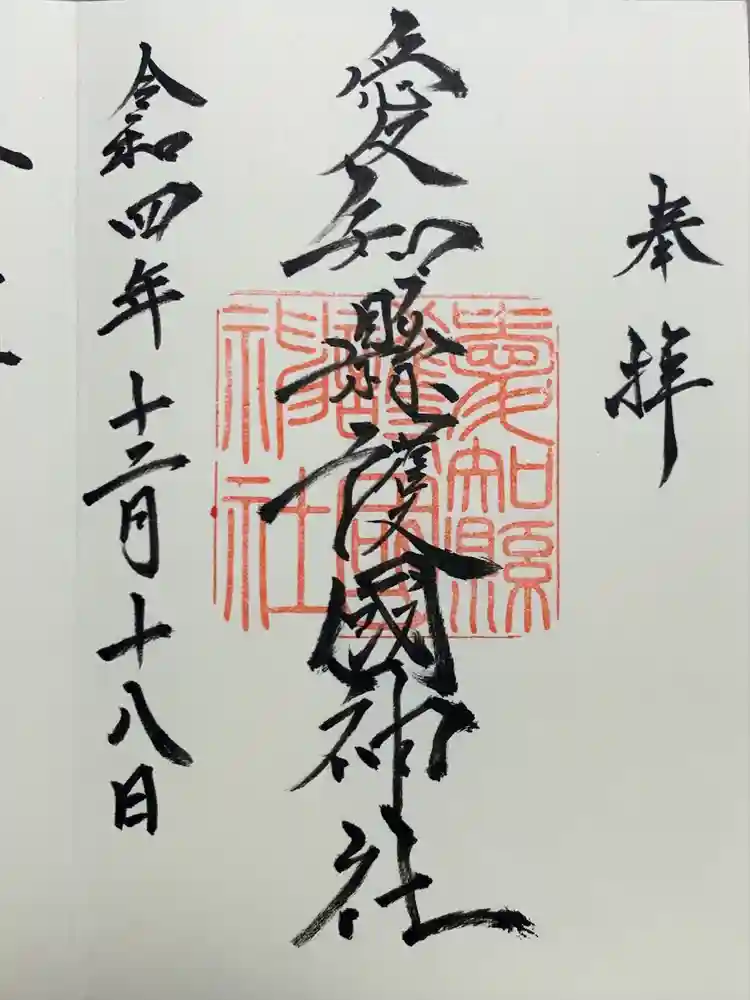 奉拝
愛知縣護國神社
愛知縣
護國
神社
令和四年十二月十八日